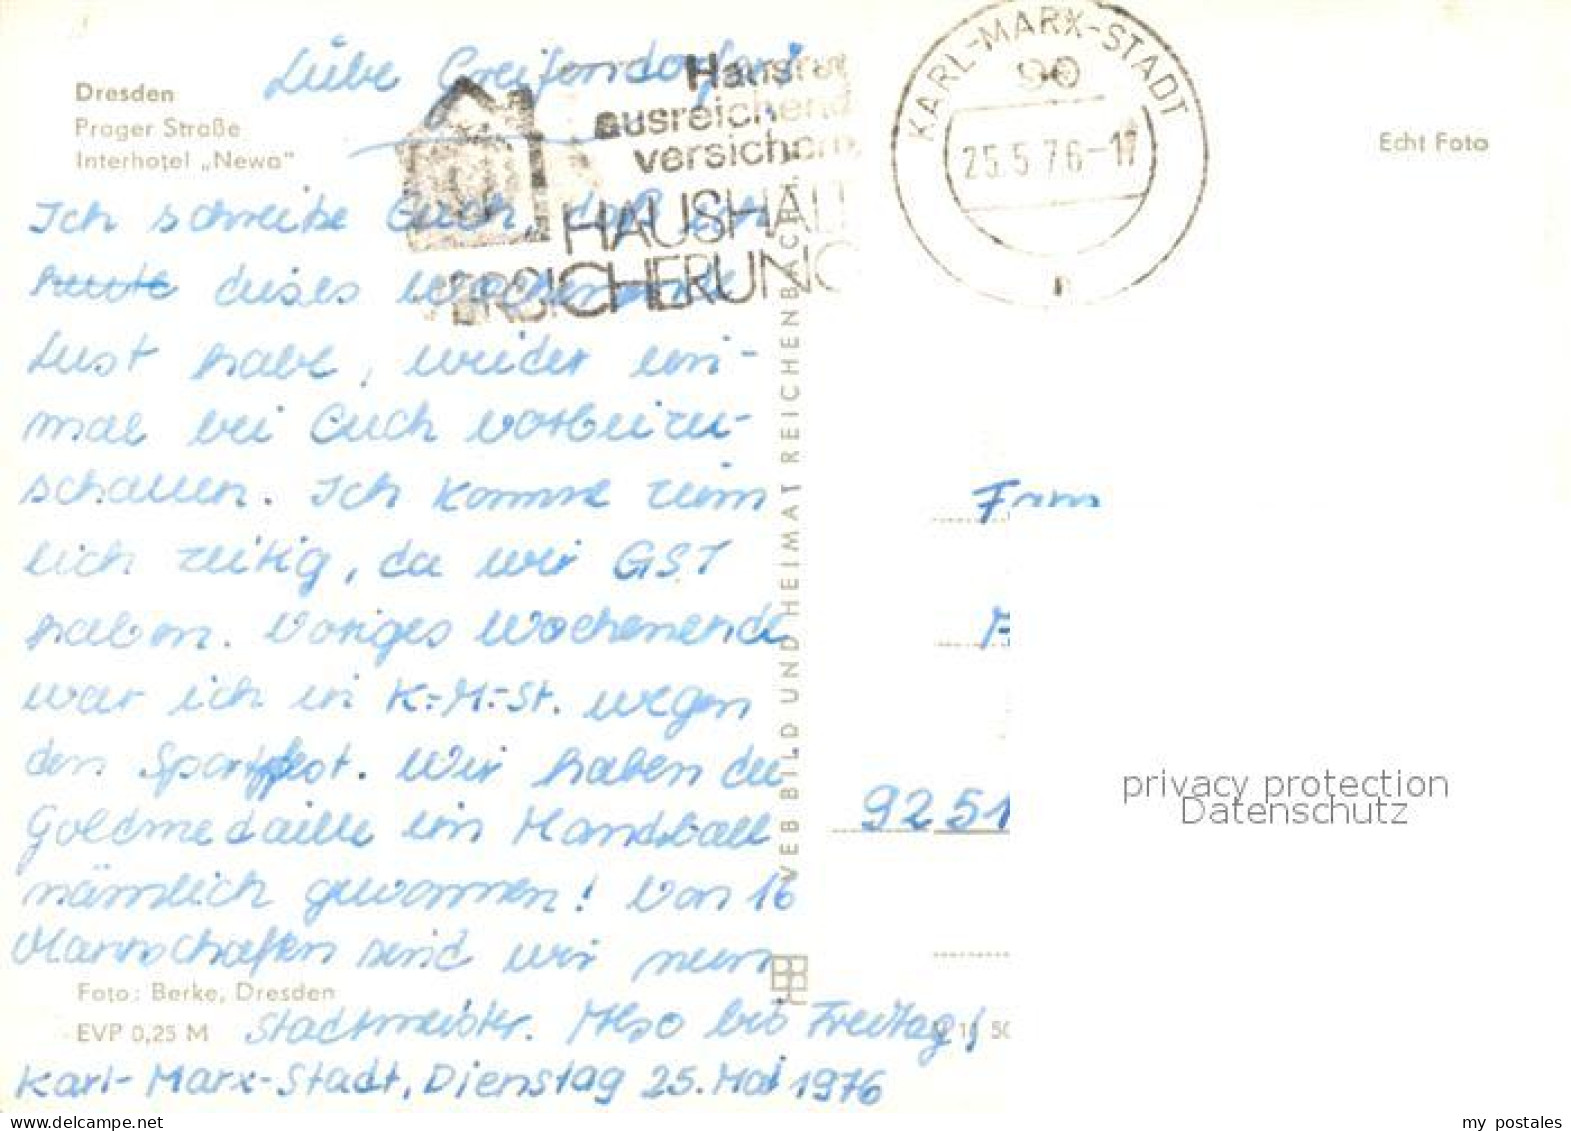 Dresden
Prager Straße
Interhotel „Newa"
Liebe Greifendorfer!
Haus
ausreichend
versichern
HAUSHALT
ERSICHERUNG
KARL-MARX-STADT
90
25.5.76-17
Echt Foto
Ich schreibe Euch, daß ich
heute dieses Wochenende
Lust habe, wieder ein-
mal bei Euch vorbeizu-
schauen. Ich komme ziem
lich zeitig, da wir GST
haben. Voriges Wochenende
war ich in K.-M.-St. wegen
den Sportfest. Wir haben die
Goldmedaille im Handball
nämlich gewonnen! Von 16
Mannschaften sind wir nun
Stadtmeister. Also bis Freitag!
Karl-Marx-Stadt, Dienstag 25. Mai 1976
VEB BILD UND HEIMAT REICHENBACH
9251
privacy protection
Datenschutz
Foto: Berke, Dresden
EVP 0,25 M
my postales